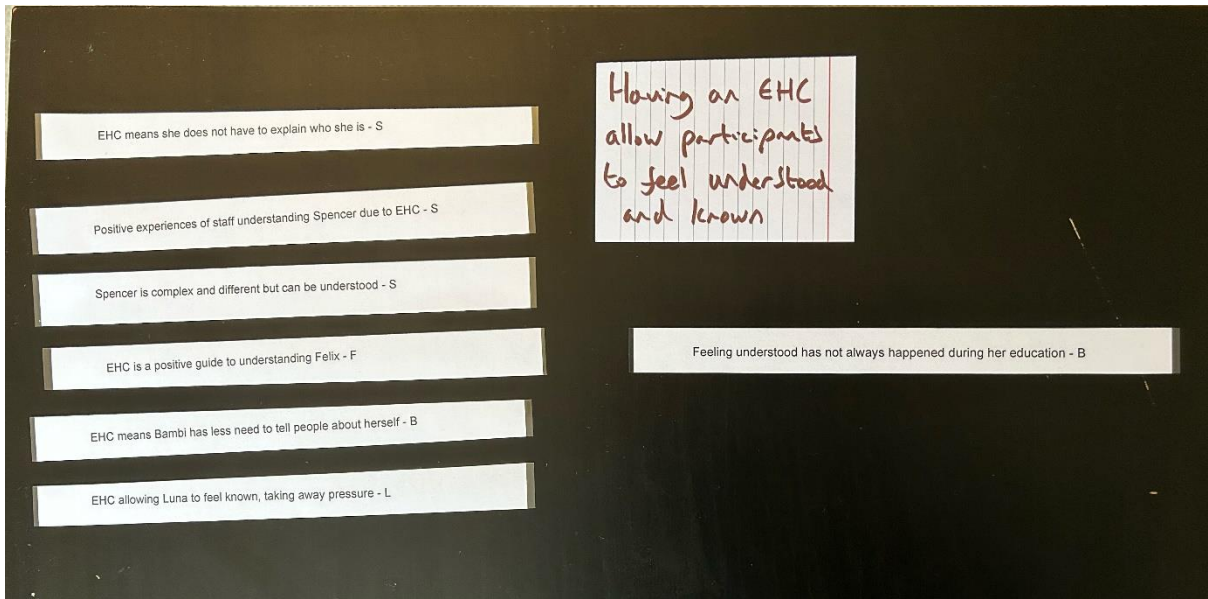 EHC means she does not have to explain who she is - S
Positive experiences of staff understanding Spencer due to EHC - S
Spencer is complex and different but can be understood - S
EHC is a positive guide to understanding Felix - F
EHC means Bambi has less need to tell people about herself - B
EHC allowing Luna to feel known, taking away pressure - L
Having an EHC
allow participants
to feel understood
and known
Feeling understood has not always happened during her education - B